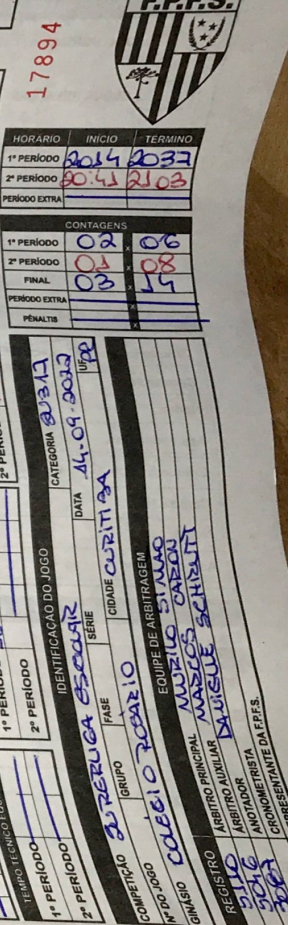 F.P.F.S.
17894
HORÁRIO INÍCIO TÉRMINO
1º PERÍODO 2014 2037
2º PERÍODO 20:41 2103
PERÍODO EXTRA
CONTAGENS
1º PERÍODO 02 x 06
2º PERÍODO 01 x 08
FINAL 03 x
PERÍODO EXTRA x
PÊNALTIS x
TEMPO TÉCNICO
1º PERÍODO
2º PERÍODO
1º PERÍODO
2º PERÍODO
IDENTIFICAÇÃO DO JOGO
COMPETIÇÃO ESCOLAR CATEGORIA
Nº DO JOGO GRUPO FASE SÉRIE DATA 14.09.2022 UF PR
GINÁSIO COLÉGIO ROSÁRIO CIDADE CURITIBA
EQUIPE DE ARBITRAGEM
REGISTRO
ÁRBITRO PRINCIPAL MURILO SIMÃO
ÁRBITRO AUXILIAR MARCOS CARON
ANOTADOR
CRONOMETRISTA
REPRESENTANTE DA F.P.F.S.